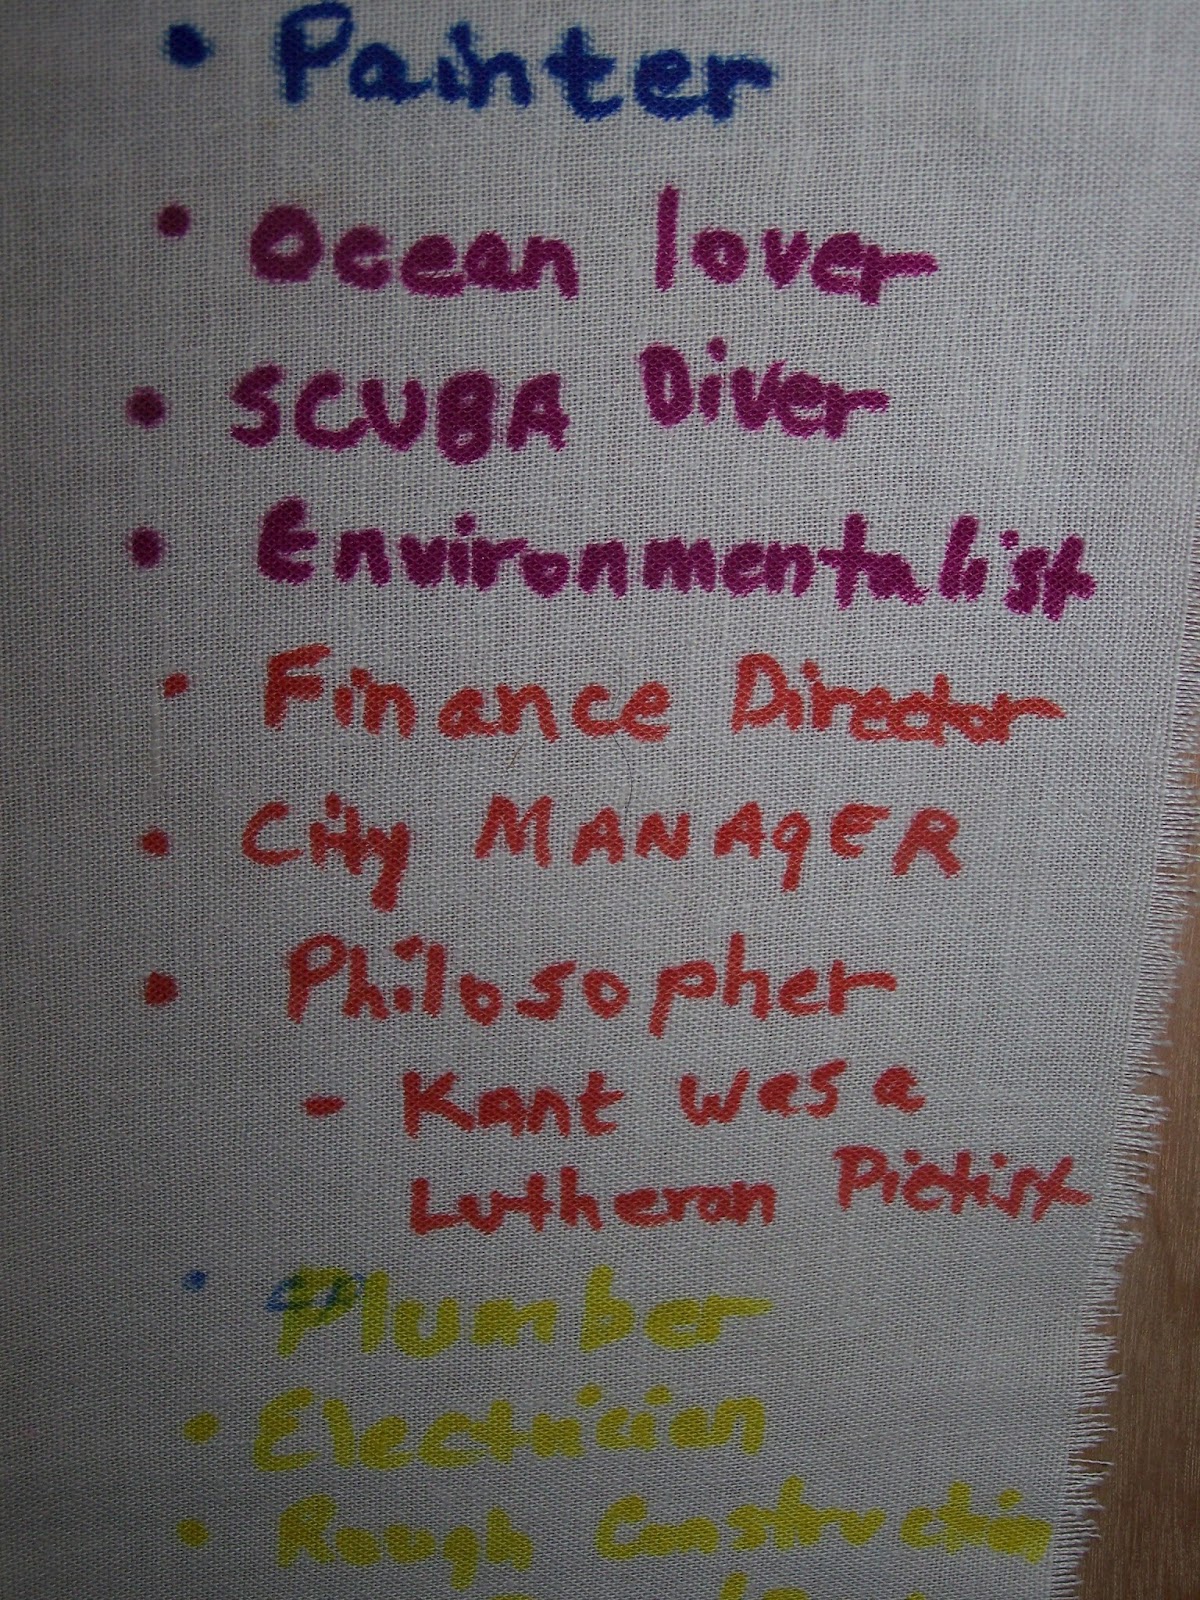 • Painter
• Ocean lover
• SCUBA Diver
• Environmentalist
• Finance Director
• City MANAGER
• Philosopher
- Kant was a
Lutheran Pietist
• Plumber
• Electrician
• Rough Construction